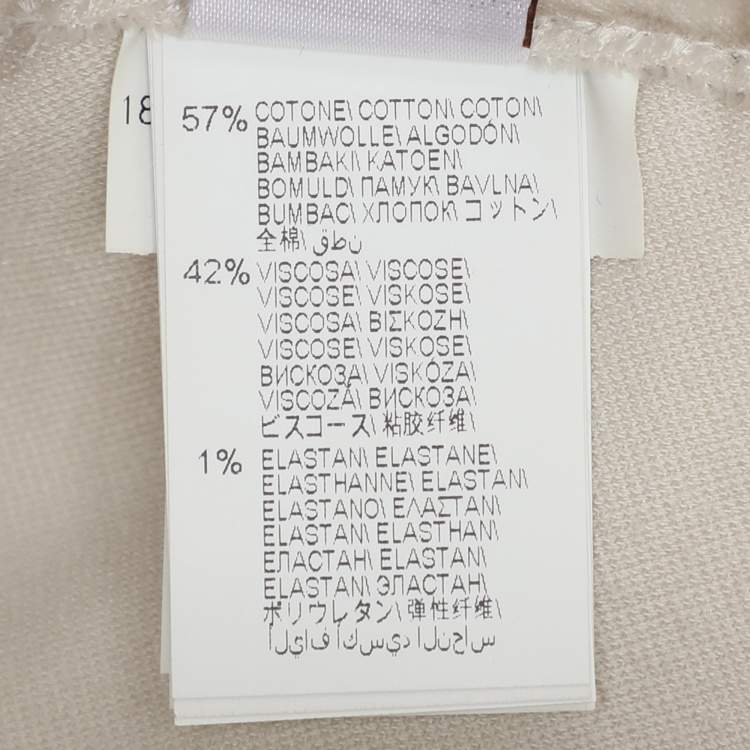 18
57% COTONE\ COTTON\ COTON\
BAUMWOLLE\ ALGODÓN\
BAMBAKI\ KATOEN\
BOMULD\ ПАМУК\ BAVLNA\
BUMBAC\ ХЛОПОК\ コットン\
全棉\ قطن
42% VISCOSA\ VISCOSE\
VISCOSE\ VISKOSE\
VISCOSA\ ΒΙΣΚΟΖΗ\
VISCOSE\ VISKOSE\
ВИСКОЗА\ VISKÓZA\
VISCOZĂ\ ВИСКОЗА\
ビスコース\ 粘胶纤维\
1% ELASTAN\ ELASTANE\
ELASTHANNE\ ELASTAN\
ELASTANO\ ΕΛΑΣΤΑΝ\
ELASTAN\ ELASTHAN\
ЕЛАСТАН\ ELASTAN\
ELASTAN\ ЭЛАСТАН\
ポリウレタン\ 弾性纤维\
ألياف أكسيد النحاس